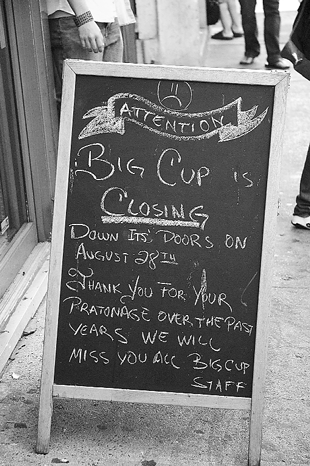 ATTENTION
BIG CUP IS
CLOSING
DOWN ITS' DOORS ON
AUGUST 28TH
THANK YOU FOR YOUR
PRATONAGE OVER THE PAST
YEARS WE WILL
MISS YOU ALL BIG CUP
STAFF